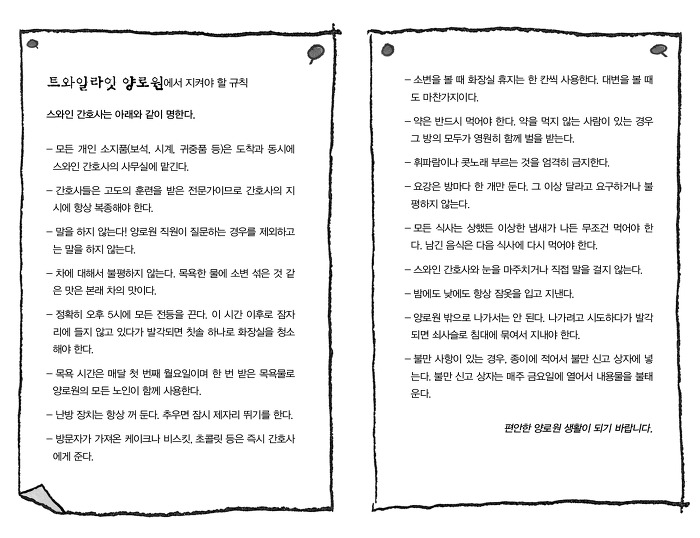 트와일라잇 양로원에서 지켜야 할 규칙
스와인 간호사는 아래와 같이 명한다.
– 모든 개인 소지품(보석, 시계, 귀중품 등)은 도착과 동시에
스와인 간호사의 사무실에 맡긴다.
– 간호사들은 고도의 훈련을 받은 전문가이므로 간호사의 지
시에 항상 복종해야 한다.
– 말을 하지 않는다! 양로원 직원이 질문하는 경우를 제외하고
는 말을 하지 않는다.
– 차에 대해서 불평하지 않는다. 목욕한 물에 소변 섞은 것 같
은 맛은 본래 차의 맛이다.
– 정확히 오후 5시에 모든 전등을 끈다. 이 시간 이후로 잠자
리에 들지 않고 있다가 발각되면 칫솔 하나로 화장실을 청소
해야 한다.
– 목욕 시간은 매달 첫 번째 월요일이며 한 번 받은 목욕물로
양로원의 모든 노인이 함께 사용한다.
– 난방 장치는 항상 꺼 둔다. 추우면 잠시 제자리 뛰기를 한다.
– 방문자가 가져온 케이크나 비스킷, 초콜릿 등은 즉시 간호사
에게 준다.
– 소변을 볼 때 화장실 휴지는 한 칸씩 사용한다. 대변을 볼 때
도 마찬가지이다.
– 약은 반드시 먹어야 한다. 약을 먹지 않는 사람이 있는 경우
그 방의 모두가 영원히 함께 벌을 받는다.
– 휘파람이나 콧노래 부르는 것을 엄격히 금지한다.
– 요강은 방마다 한 개만 둔다. 그 이상 달라고 요구하거나 불
평하지 않는다.
– 모든 식사는 상했든 이상한 냄새가 나든 무조건 먹어야 한
다. 남긴 음식은 다음 식사에 다시 먹어야 한다.
– 스와인 간호사와 눈을 마주치거나 직접 말을 걸지 않는다.
– 밤에도 낮에도 항상 잠옷을 입고 지낸다.
– 양로원 밖으로 나가서는 안 된다. 나가려고 시도하다가 발각
되면 쇠사슬로 침대에 묶여서 지내야 한다.
– 불만 사항이 있는 경우, 종이에 적어서 불만 신고 상자에 넣
는다. 불만 신고 상자는 매주 금요일에 열어서 내용물을 불태
운다.
편안한 양로원 생활이 되기 바랍니다.